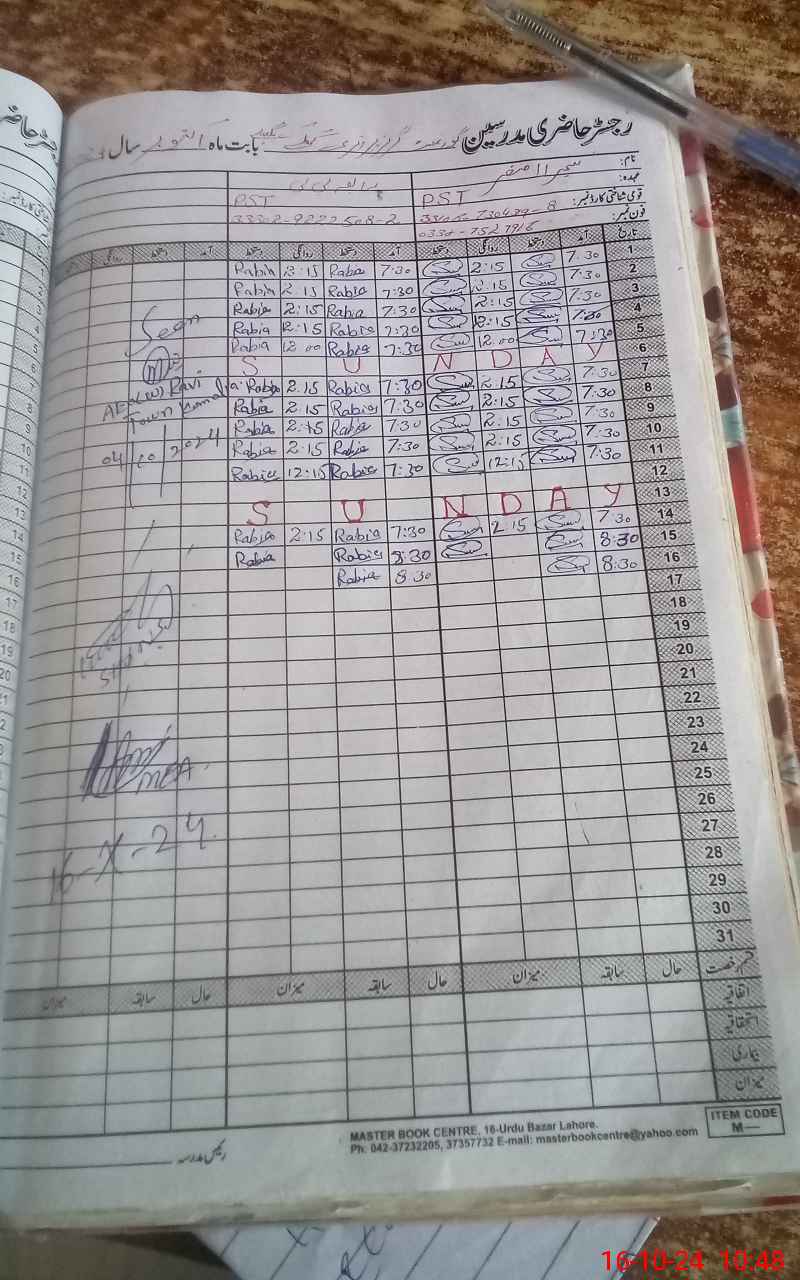 رجسٹر حاضری مدرسین گورنمنٹ گرلز پرائمری بابت ماہ اکتوبر سال
نام:
عہدہ: PST PST
قومی شناختی کارڈ نمبر: 33302-9222508-2
فون نمبر:
تاریخ آمد دستخط روانگی دستخط آمد دستخط روانگی دستخط آمد دستخط روانگی دستخط
1 7:30 2:15 7:30 Rabia 2:15 Rabia
2 7:30 2:15 7:30 Rabia 2:15 Rabia
3 7:30 2:15 7:30 Rabia 2:15 Rabia
4 7:30 12:15 7:30 Rabia 12:15 Rabia
5 7:30 12:00 7:30 Rabia 12:00 Rabia
6 S U N D A Y
7 7:30 2:15 7:30 Rabia 2:15 Rabia
8 7:30 2:15 7:30 Rabia 2:15 Rabia
9 7:30 2:15 7:30 Rabia 2:15 Rabia
10 7:30 2:15 7:30 Rabia 2:15 Rabia
11 7:30 12:15 7:30 Rabia 12:15 Rabia
12
13 S U N D A Y
14 7:30 2:15 7:30 Rabia 2:15 Rabia
15 8:30 8:30 Rabia Rabia
16 8:30 8:30 Rabia
17
18
19
20
21
22
23
24
25
26
27
28
29
30
31
Seen
AEO(W) Ravi
Town Kamalia
04/10/2024
MEA
16-X-24
قسم رخصت حال سابقہ میزان حال سابقہ میزان حال سابقہ میزان
اتفاقیہ
استحقاقیہ
بیماری
میزان
رئیس مدرسہ
MASTER BOOK CENTRE, 16-Urdu Bazar Lahore.
Ph: 042-37232205, 37357732 E-mail: masterbookcentre@yahoo.com
ITEM CODE
M—
16-10-24 10:48